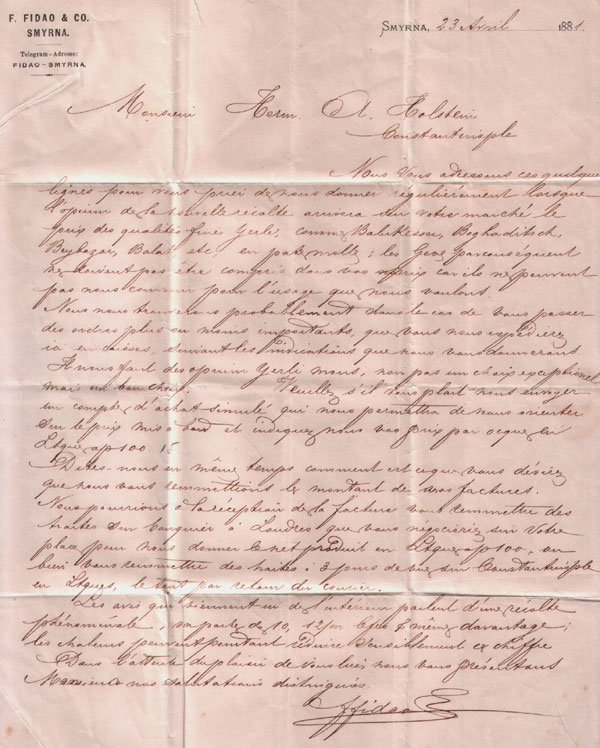 F. FIDAO & CO.
SMYRNA.
Telegram-Adresse:
FIDAO-SMYRNA.
SMYRNA, 23 Avril 1881.
Monsieur Herm. A. Holstein
Constantinople
Nous vous adressons ces quelques
lignes pour vous prier de nous donner régulièrement lorsque
l'opium de la nouvelle récolte arrivera sur votre marché le
prix des qualités fines Yerli, comme Balukessar, Boghaditsch,
Beybazar, Balat, etc, en pate molle; les Gevé par conséquent
ne doivent pas être compris dans vos prix car ils ne peuvent
pas nous convenir pour l'usage que nous voulons
Nous nous trouverons probablement dans le cas de vous passer
des ordres plus ou moins importants, que vous nous expédierez
ici en caisses, suivant les indications que nous vous donnerons.
Il nous faut des opium Yerli mous, non pas un choix exceptionel
mais un bon choix. Veuillez s'il vous plait nous envoyer
un compte d'achat simulé qui nous permettra de nous orienter
sur le prix mis à bord et indiquez nous vos prix par ocque en
Ltque 100
Dites-nous en même temps comment est ce que vous désirez
que nous vous remmettions le montant de vos factures.
Nous pourrions à la réception de la facture vous remmettre des
traites sur banquier à Londres que vous négocieriez sur votre
place pour nous donner le net produit en Ltque 100, ou
bien vous remmettre des traites à 3 jours de vue sur Constantinople
en Ltques, le tout par retour du courrier.
Les avis qui viennent ici de l'intérieur parlent d'une récolte
phénoménale: on parle de 10, 12/m et même davantage;
les chaleurs peuvent pourtant réduire sensiblement ce chiffre
Dans l'attente du plaisir de vous lire nous vous présentons
Monsieur nos salutations distinguées.
ffidao